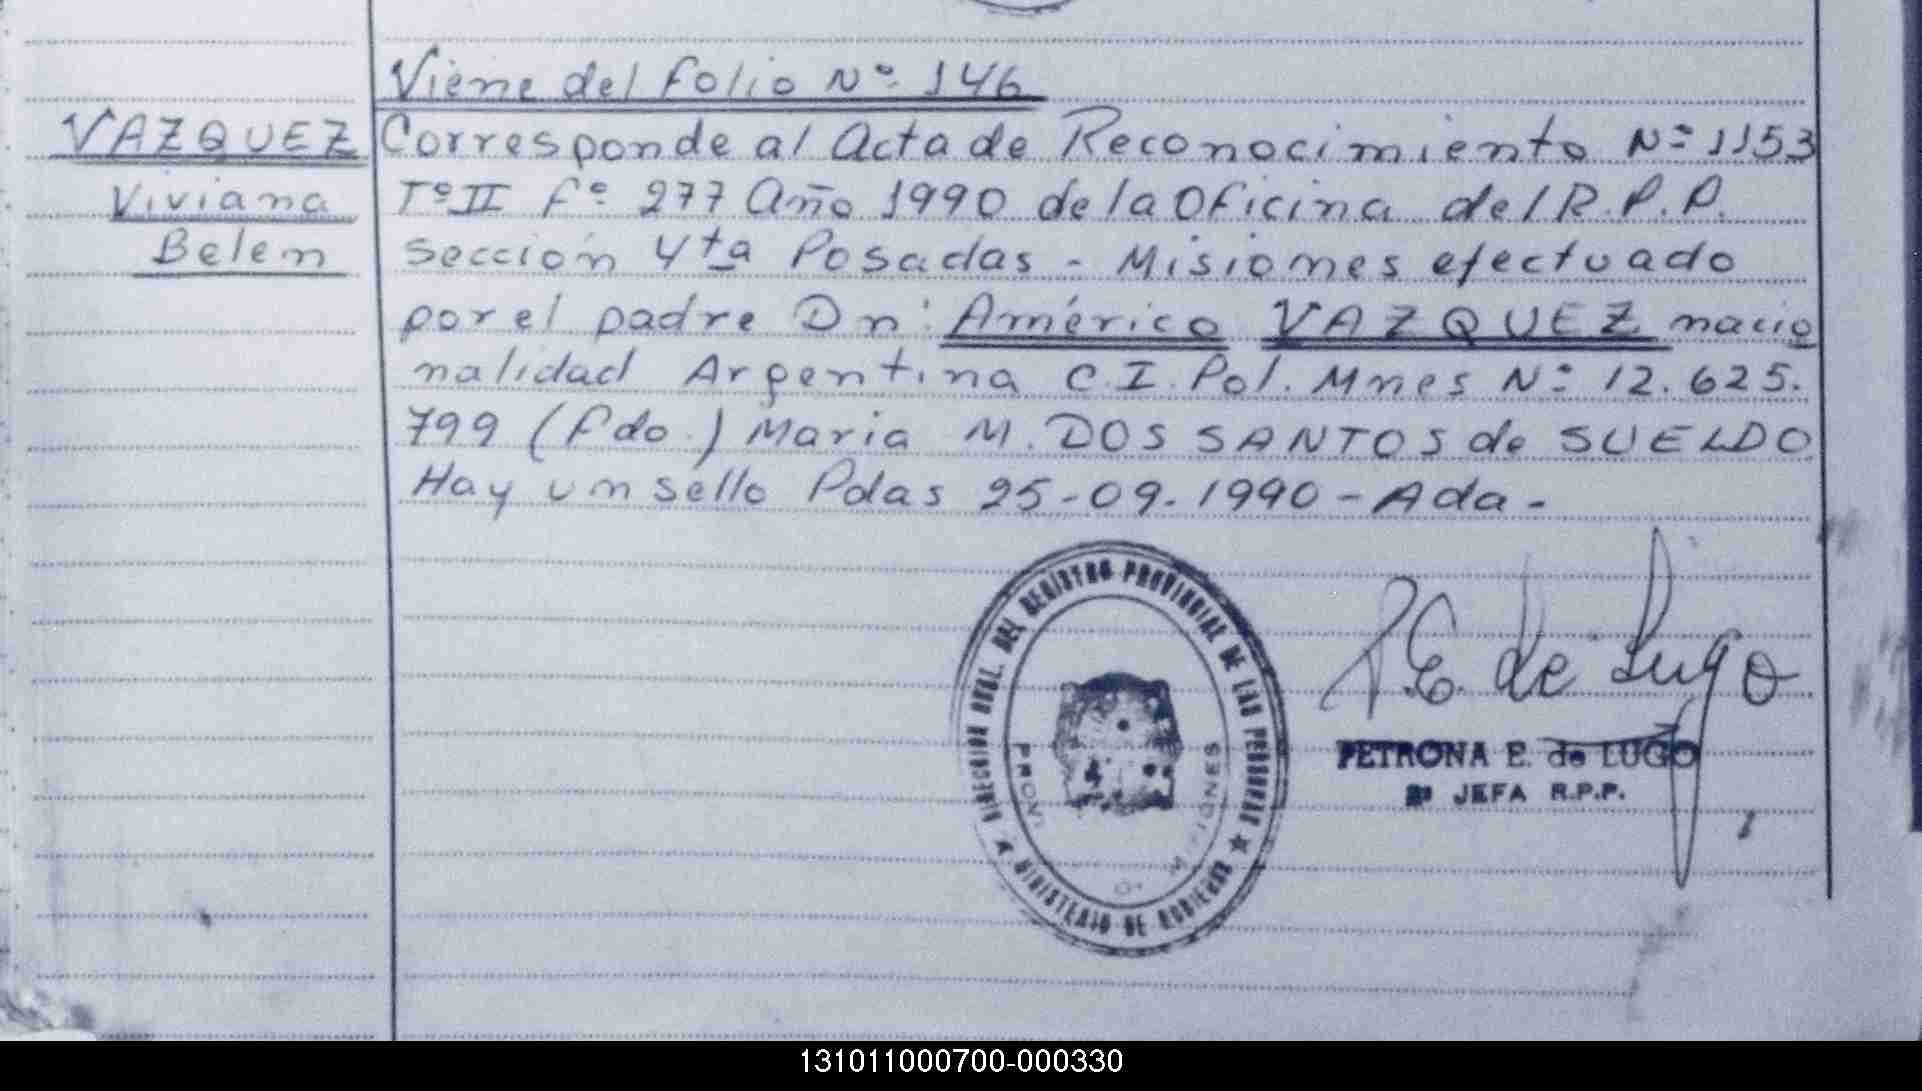 Viene del Folio Nº 146
VAZQUEZ
Viviana
Belem
Corresponde al Acta de Reconocimiento Nº 1153
Tº II Fº 277 Año 1990 de la Oficina del R.P.P.
Sección 4ta Posadas - Misiones efectuado
por el padre Dn: Américo VAZQUEZ nacio
nalidad Argentina C.I. Pol. Mnes Nº 12.625.
799 (Fdo.) Maria M. DOS SANTOS de SUELDO
Hay un sello Pdas 25-09-1990 - Ada -
DIRECCION GRAL. DEL REGISTRO PROVINCIAL DE LAS PERSONAS
MINISTERIO DE GOBIERNO
MISIONES
P.E. de Lugo
PETRONA E. de LUGO
JEFA R.P.P.
131011000700-000330